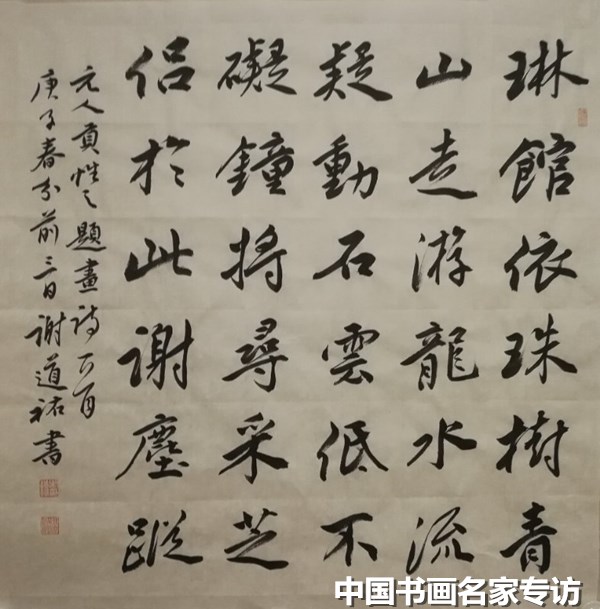 琳館依珠樹青
山走游龍水流
疑動石雲低不
礙鐘將尋采芝
侣於此謝塵蹤
元人貢性之題畫詩一首
庚子春分前三日謝道祐書
中国书画名家专访